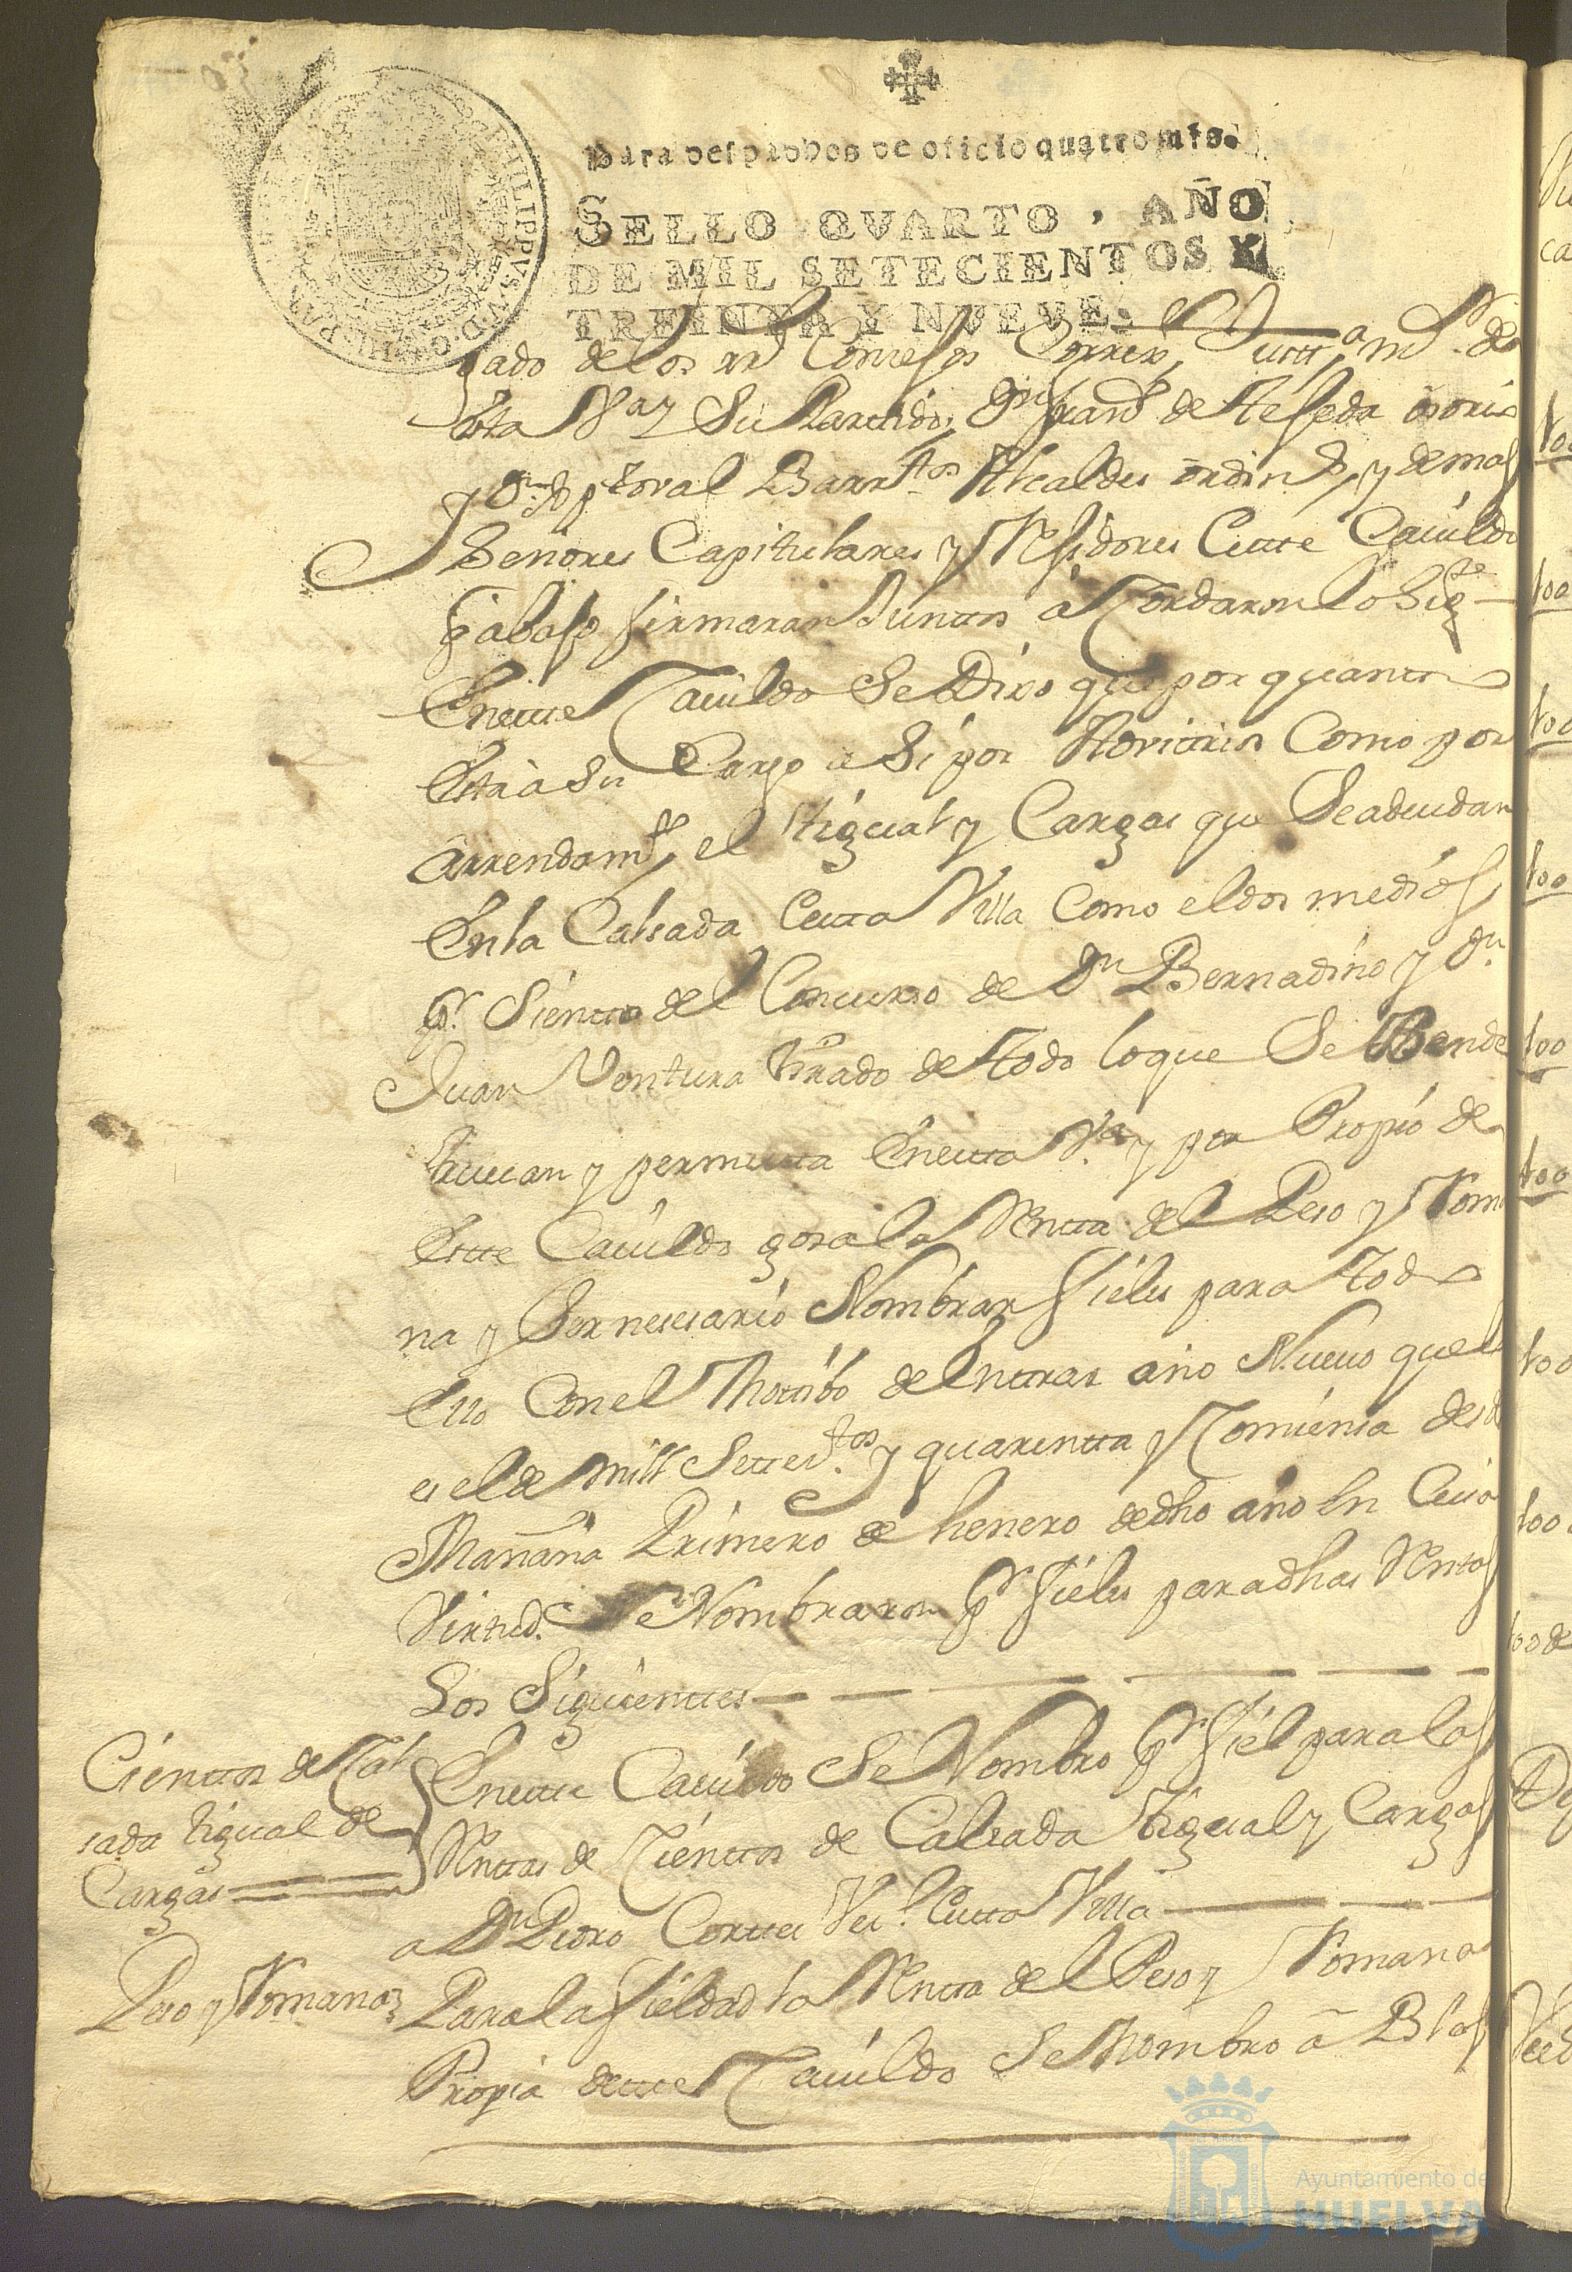 Para despachos de oficio quatro mrs.
SELLO QVARTO, AÑO
DE MIL SETECIENTOS Y
TREINTA Y NUEVE.
PHILIPPVS V D G HISPA
gado de los rrs Consejos Correxr, Justta mr de
esta Va y Su Partido, Dn Juan de Texeda osorio
y Dn Barrtos Alcaldes ordins, y demas
Señores Capitulares y Rexidores Cutte Cavildo
q abaxo firmaran Juntos acordaron lo Sigte
Enette Cavildo Se Dixo que por quanto
Esta a Su Cargo a Si por Como por
arrendamto, el tigual y Cargas que Seadeudan
Enla Calsada Cetta Villa Como el dos medios
pr Siento del Concurso de Dn Bernadino y Dn
Juan Ventura tirado de todo loque Se Bende
truecan y permutta Enetta Va y por Propio de
Ette Cavildo gosa la Rentta del Peso y Roma
na y Ser nesesario Nombrar fieles para todo
Ello Con el Mottibo de Entrar año Nuevo que
es el de mill Settestos y quarentta y Comiensa desde
Mañana Primero de henero de dho año En Cuia
Virtud. Se Nombraron pr fieles para dhas Rentas
Los Siguienttes
Cienttos de Cal
sada tigual de
Cargas
Enette Cavildo Se Nombro pr fiel para las
Renttas de Cienttos de Calsada tigual y Cargas
a Dn Pedro Corttes Vesl. Cetta Villa
Peso y Romana
Para la fieldad la Rentta del Peso y Romana
Propia dette Cavildo Se Nombro a Blas
Ayuntamiento de
HUELVA